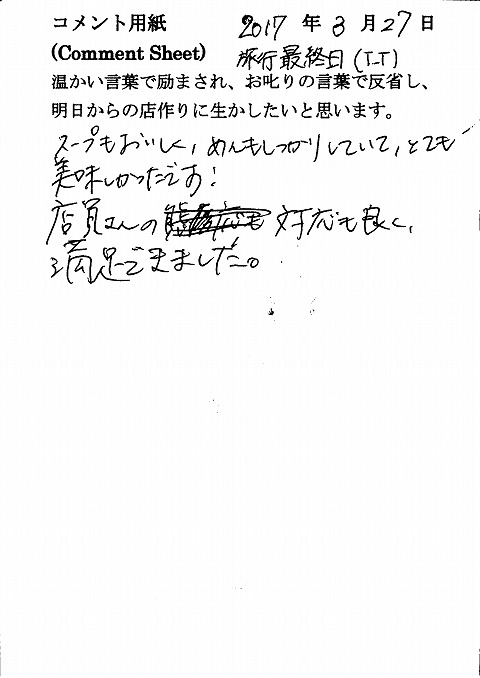 コメント用紙 2017 年 3 月 27 日
(Comment Sheet) 旅行最終日(T_T)
温かい言葉で励まされ、お叱りの言葉で反省し、
明日からの店作りに生かしたいと思います。
スープもおいしく、めんもしっかりしていて、とても
美味しかったです!
店員さんの 対応も良く、
満足できました。